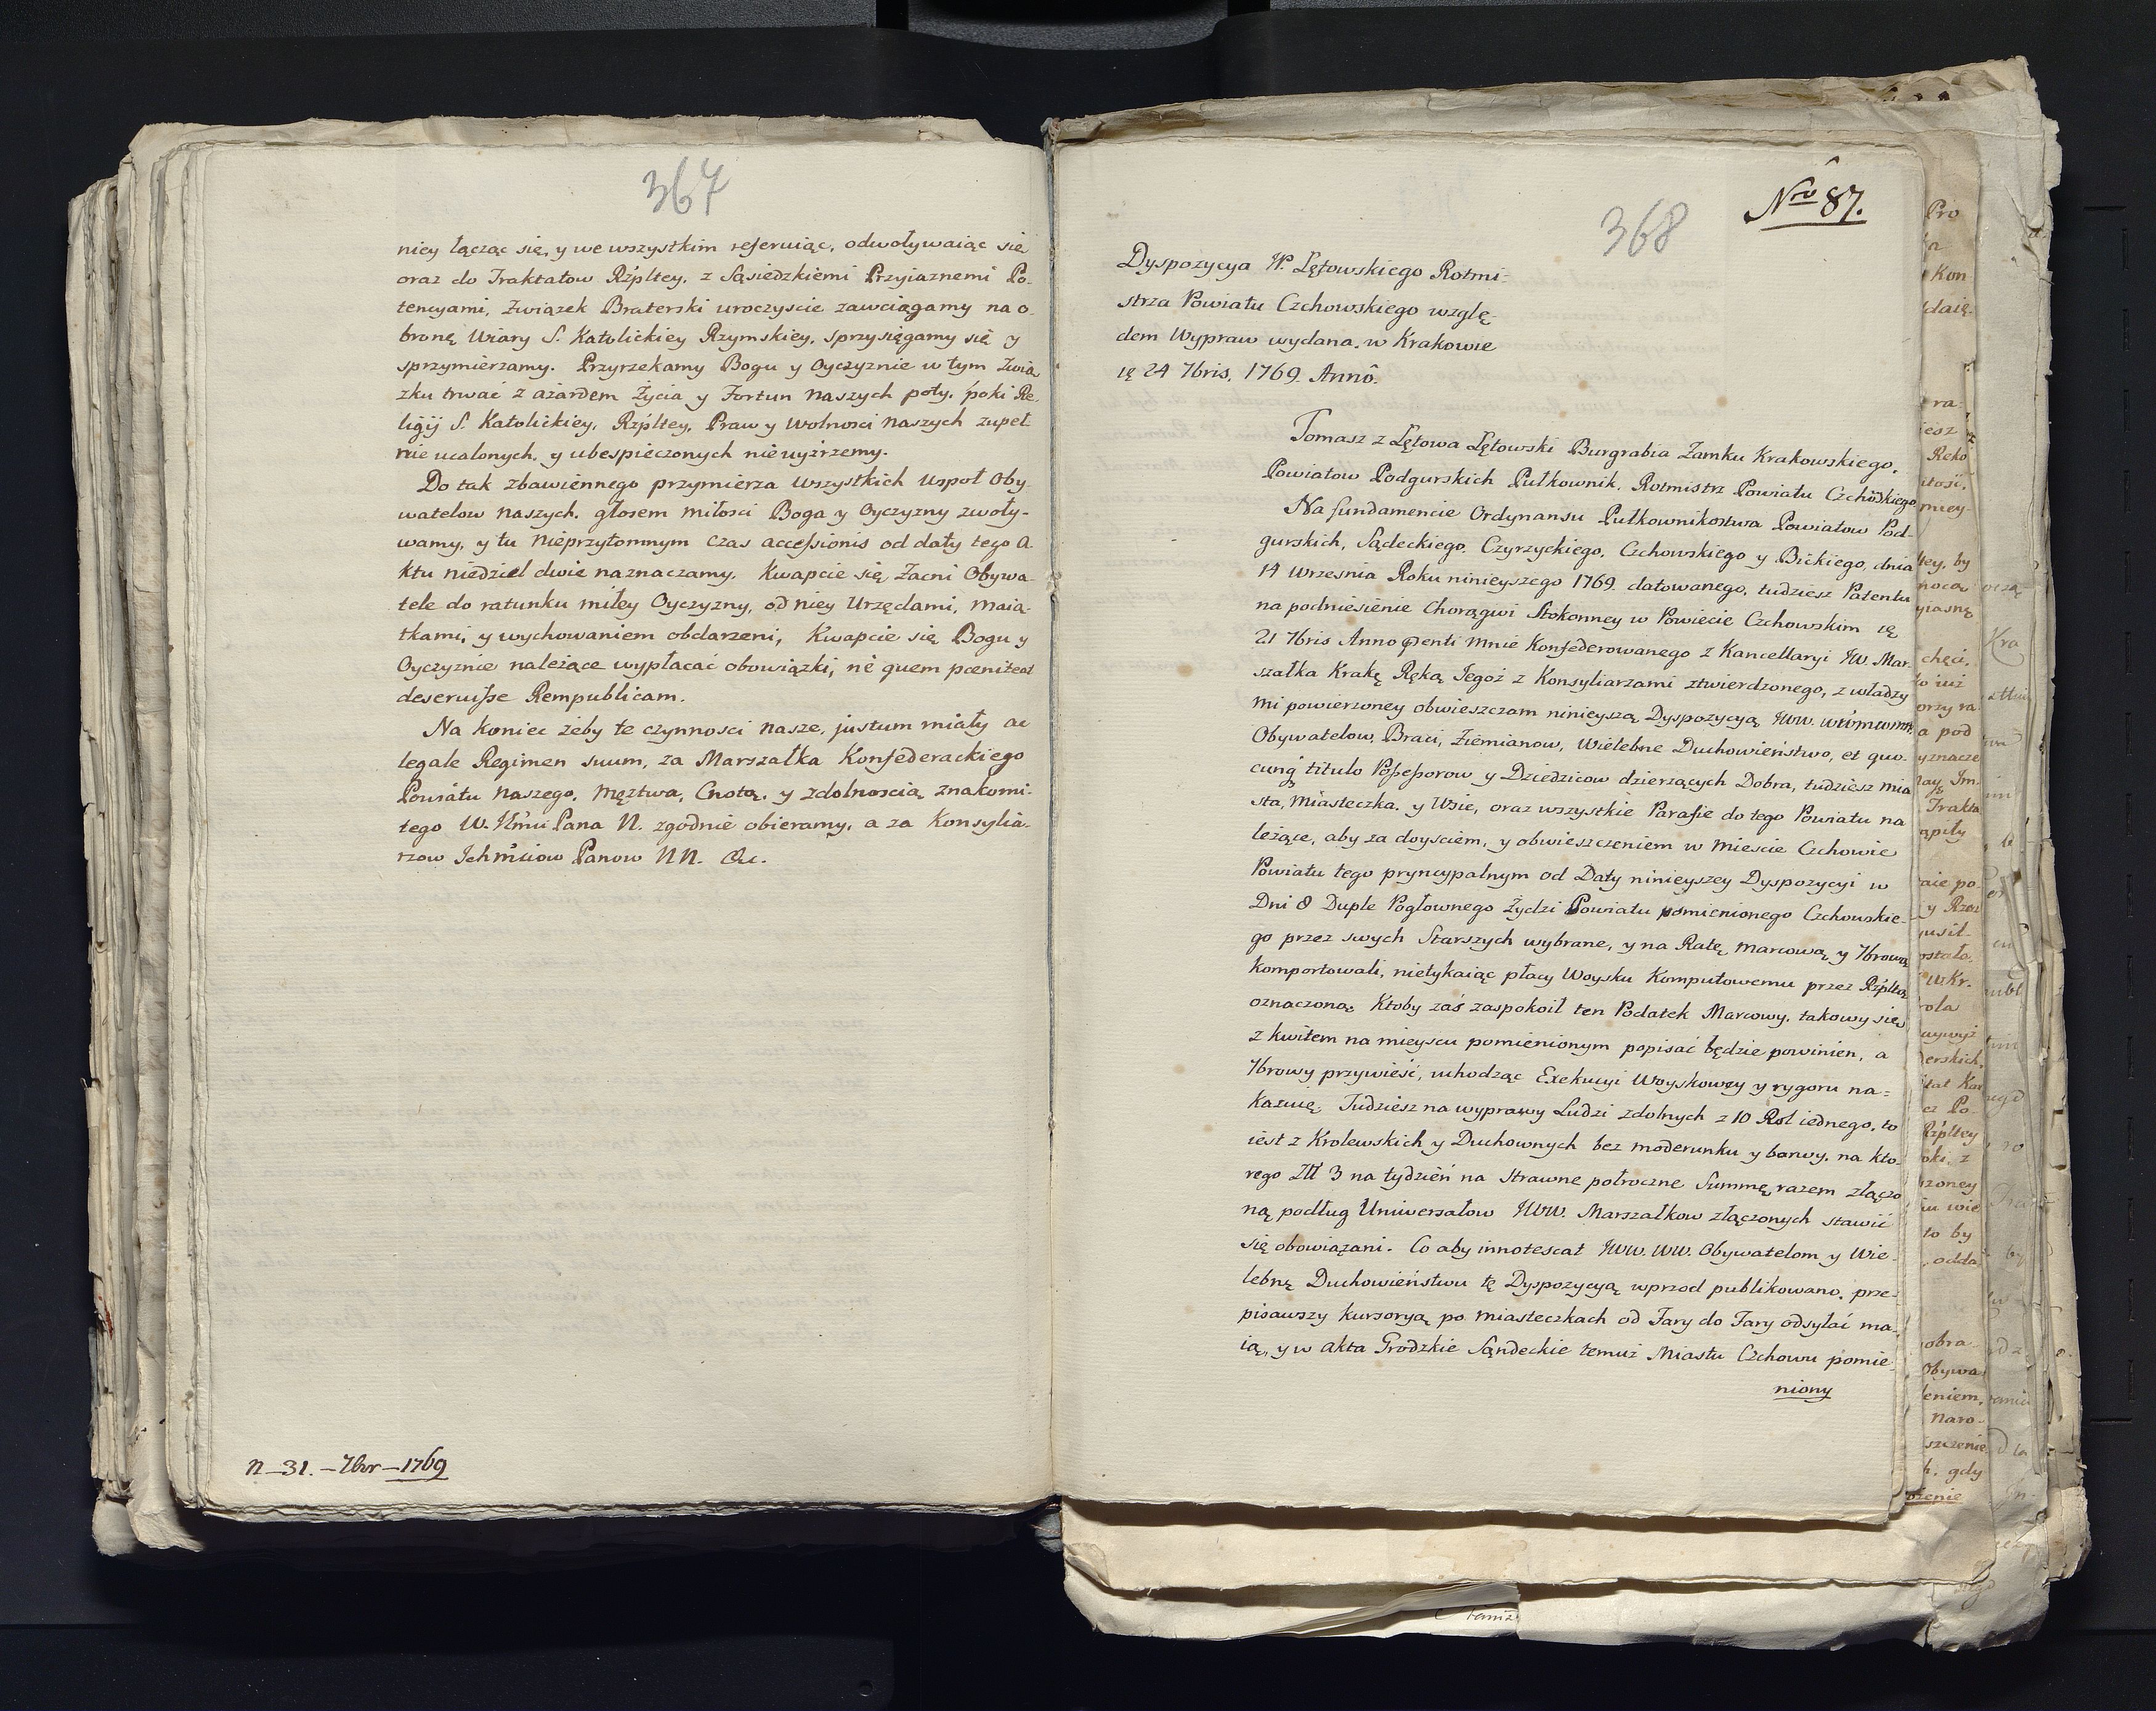 367
niey łącząc się, y we wszystkim referuiąc, odwoływaiąc się
oraz do Traktatow Rzpltey, z Sąsiedzkiemi Przyiaznemi Po-
tencyami, Związek Braterski uroczyscie zawciągamy na o-
bronę Wiary S. Katolickiey Rzymskiey, sprzysięgamy się y
sprzymierzamy. Przyrzekamy Bogu y Oyczyznie w tym Zwią
zku trwać z azardem Życia y Fortun naszych poty, poki Re-
ligij S. Katolickiey, Rzpltey, Praw y Wolnosci naszych zupeł
nie ucalonych, y ubespieczonych nie uyźrzemy.
Do tak zbawiennego przymierza wszystkich uspoł Oby
watelow naszych, głosem miłosci Boga y Oyczyzny zwoły-
wamy, y tu nieprzytomnym czas accessionis od daty tego A
ktu niedziel dwie naznaczamy. Kwapcie się Zacni Obywa-
tele do ratunku miłey Oyczyzny, od niey Urzędami, maią-
tkami, y wychowaniem obdarzeni, Kwapcie się Bogu y
Oyczyznie należące wypłacać obowiązki, nè quem pœniteat
deseruisse Rempublicam.
Na koniec żeby te czynnosci nasze, justum miały ac
legale Regimen suum, za Marszałka Konfederackiego
Powiatu naszego, męztwa, Cnotą, y zdolnoscią znakomi-
tego W. Jmci Pana N. zgodnie obieramy, a za Konsylia-
rzow Ichmciow Panow NN. &c.
n_31._7br_1769
368
Nro 87.
Dyspozycya W. Lętowskiego Rotmi-
strza Powiatu Czchowskiego wzglę-
dem Wypraw wydana, w Krakowie
ię 24 7bris, 1769. Annô.
Tomasz z Lętowa Lętowski Burgrabia Zamku Krakowskiego,
Powiatow Podgurskich Pułkownik, Rotmistrz Powiatu Czchoskiego
Na fundamencie Ordynansu Pułkownikostwa Powiatow Pod-
gurskich, Sądeckiego, Czyrzyckiego, Czchowskiego y Bickiego, dnia
14 Wrzesnia Roku ninieyszego 1769. datowanego, tudziesz Patentu
na podniesienie Chorągwi Stokonney w Powiecie Czchowskim ię
21 7bris Anno pnti mnie Konfederowanego z Kancellaryi JW. Mar-
szałka Krakę Ręką Jegoż z Konsyliarzami ztwierdzonego, z władzy
mi powierzoney obwieszczam ninieyszą Dyspozycyą JWW.
Obywatelow, Braci, Ziemianow, Wielebne Duchowieństwo, et quo-
cunq titulo Possessorow y Dziedzicow dzierzących Dobra, tudziesz mia
sta, Miasteczka, y Wsie, oraz wszystkie Parafie do tego Powiatu na
leżące, aby za doysciem, y obwieszczeniem w Miescie Czchowie
Powiatu tego pryncypalnym od Daty ninieyszey Dyspozycyi w
Dni 8 Duple Pogłownego Żydzi Powiatu pomienionego Czchowskie-
go przez swych Starszych wybrane, y na Ratę, Marcową, y 7brową
komportowali, nietykaiąc płacy Woysku Komputowemu przez Rzpltą
oznaczoną. Ktoby zaś zaspokoił ten Podatek Marcowy, takowy się
z kwitem na mieyscu pomienionym popisać będzie powinien, a
7browy przywieść, uchodząc Exekucyi Woyskowey y rygoru na=
kazuię. Tudziesz na wyprawy Ludzi zdolnych z 10 Rol iednego, to
iest z Krolewskich y Duchownych bez moderunku y barwy, na kto-
rego Złł 3 na tydzień na Strawne połroczne Summę razem złączo
ną podług Uniwersałow JWW. Marszałkow złączonych stawić
się obowiązani. Co aby innotescat JWW. WW. Obywatelom y Wie-
lebnę Duchowieństwu tę Dyspozycyą wprzod publikowano, prze-
pisawszy kursoryą po miasteczkach od Fary do Fary odsyłać ma-
ią, y w Akta Grodzkie Sąndeckie temuż Miastu Czchowu pomie-
niony